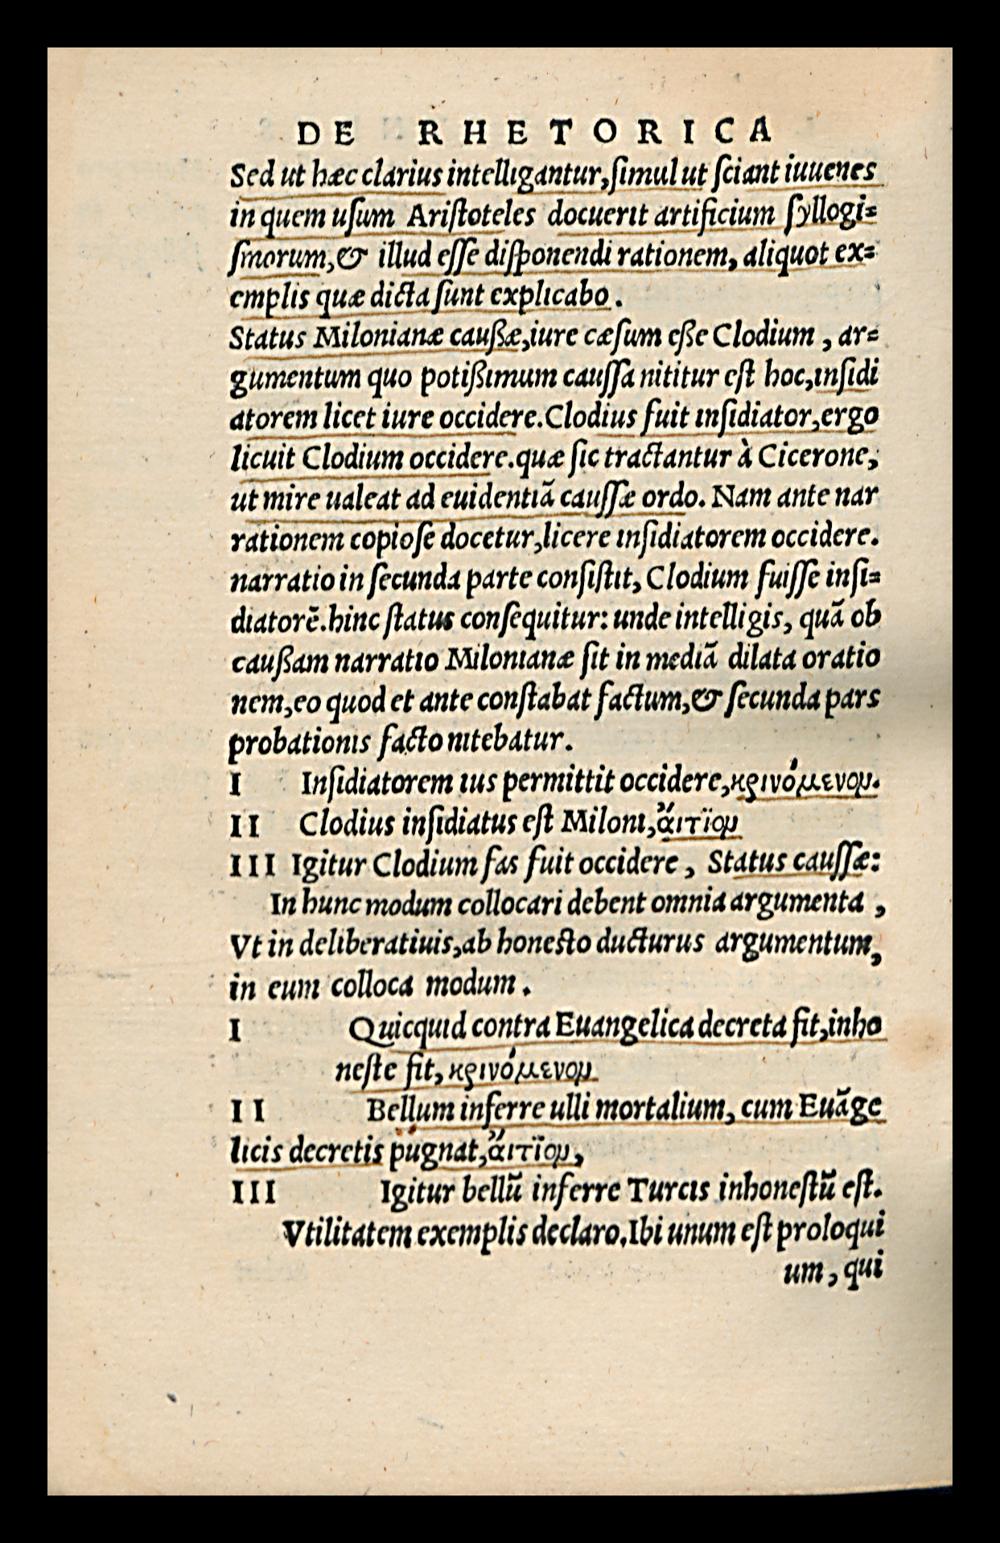 DE RHETORICA
Sed ut hæc clarius intelligantur,ſimul ut ſciant iuuenes
in quem uſum Ariſtoteles docuerit artificium ſyllogi=
ſmorum,& illud eſſe diſponendi rationem, aliquot ex=
emplis quæ dicta ſunt explicabo.
Status Milonianæ caußæ,iure cæſum eße Clodium, ar=
gumentum quo potißimum cauſſa nititur eſt hoc,inſidi
atorem licet iure occidere.Clodius fuit inſidiator,ergo
licuit Clodium occidere.quæ ſic tractantur à Cicerone,
ut mire ualeat ad euidentiã cauſſæ ordo. Nam ante nar
rationem copioſe docetur,licere inſidiatorem occidere.
narratio in ſecunda parte conſiſtit, Clodium fuiſſe inſi=
diatorẽ.hinc ſtatus conſequitur: unde intelligis, quã ob
caußam narratio Milonianæ ſit in mediã dilata oratio
nem,eo quod et ante conſtabat factum,& ſecunda pars
probationis facto nitebatur.
I Inſidiatorem ius permittit occidere,κρινόμενομ.
II Clodius inſidiatus eſt Miloni,ἄιτϊομ
III Igitur Clodium fas fuit occidere, Status cauſſæ:
In hunc modum collocari debent omnia argumenta,
Vt in deliberatiuis,ab honeſto ducturus argumentum,
in eum colloca modum.
I Quicquid contra Euangelica decreta fit,inho
neſte fit, κρινόμενομ
II Bellum inferre ulli mortalium, cum Euãge
licis decretis pugnat,ἄιτϊομ,
III Igitur bellũ inferre Turcis inhoneſtũ eſt.
Vtilitatem exemplis declaro.Ibi unum eſt proloqui
um, qui